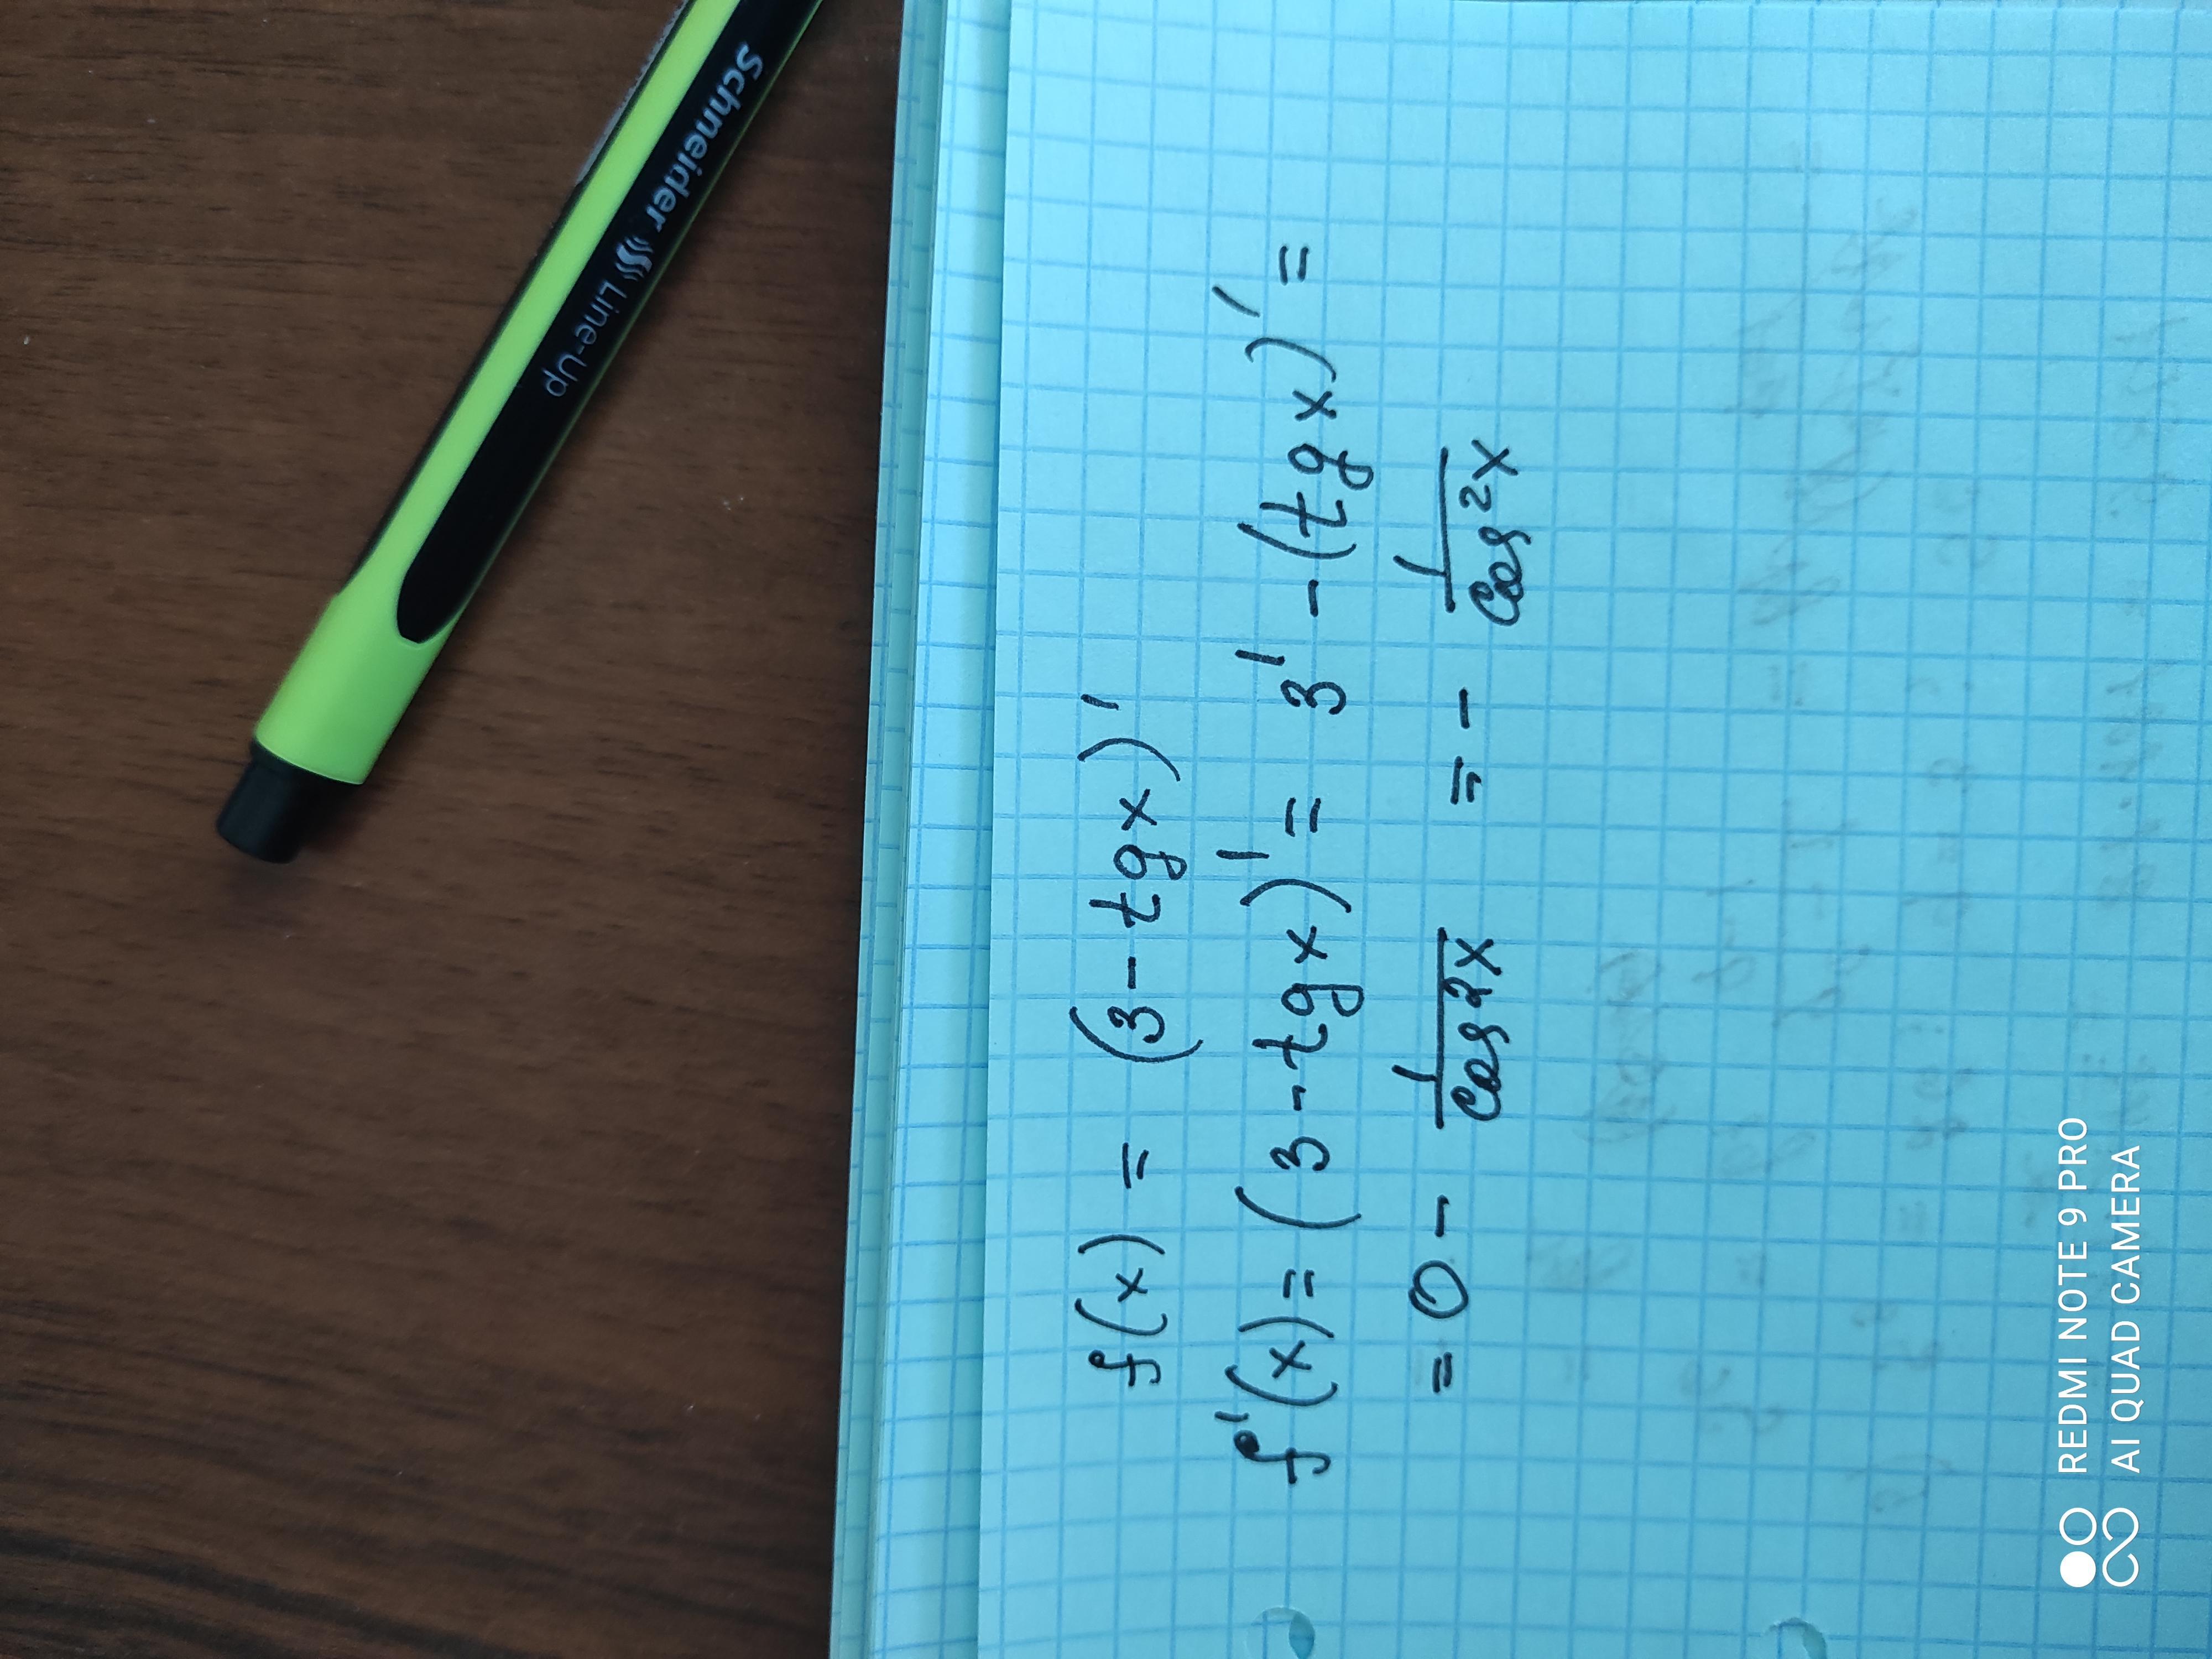 Schneider Line-Up
f(x) = (3 - tgx)'
f'(x) = (3 - tgx)' = 3' - (tgx)' =
= 0 - 1/cos²x = - 1/cos²x
REDMI NOTE 9 PRO
AI QUAD CAMERA